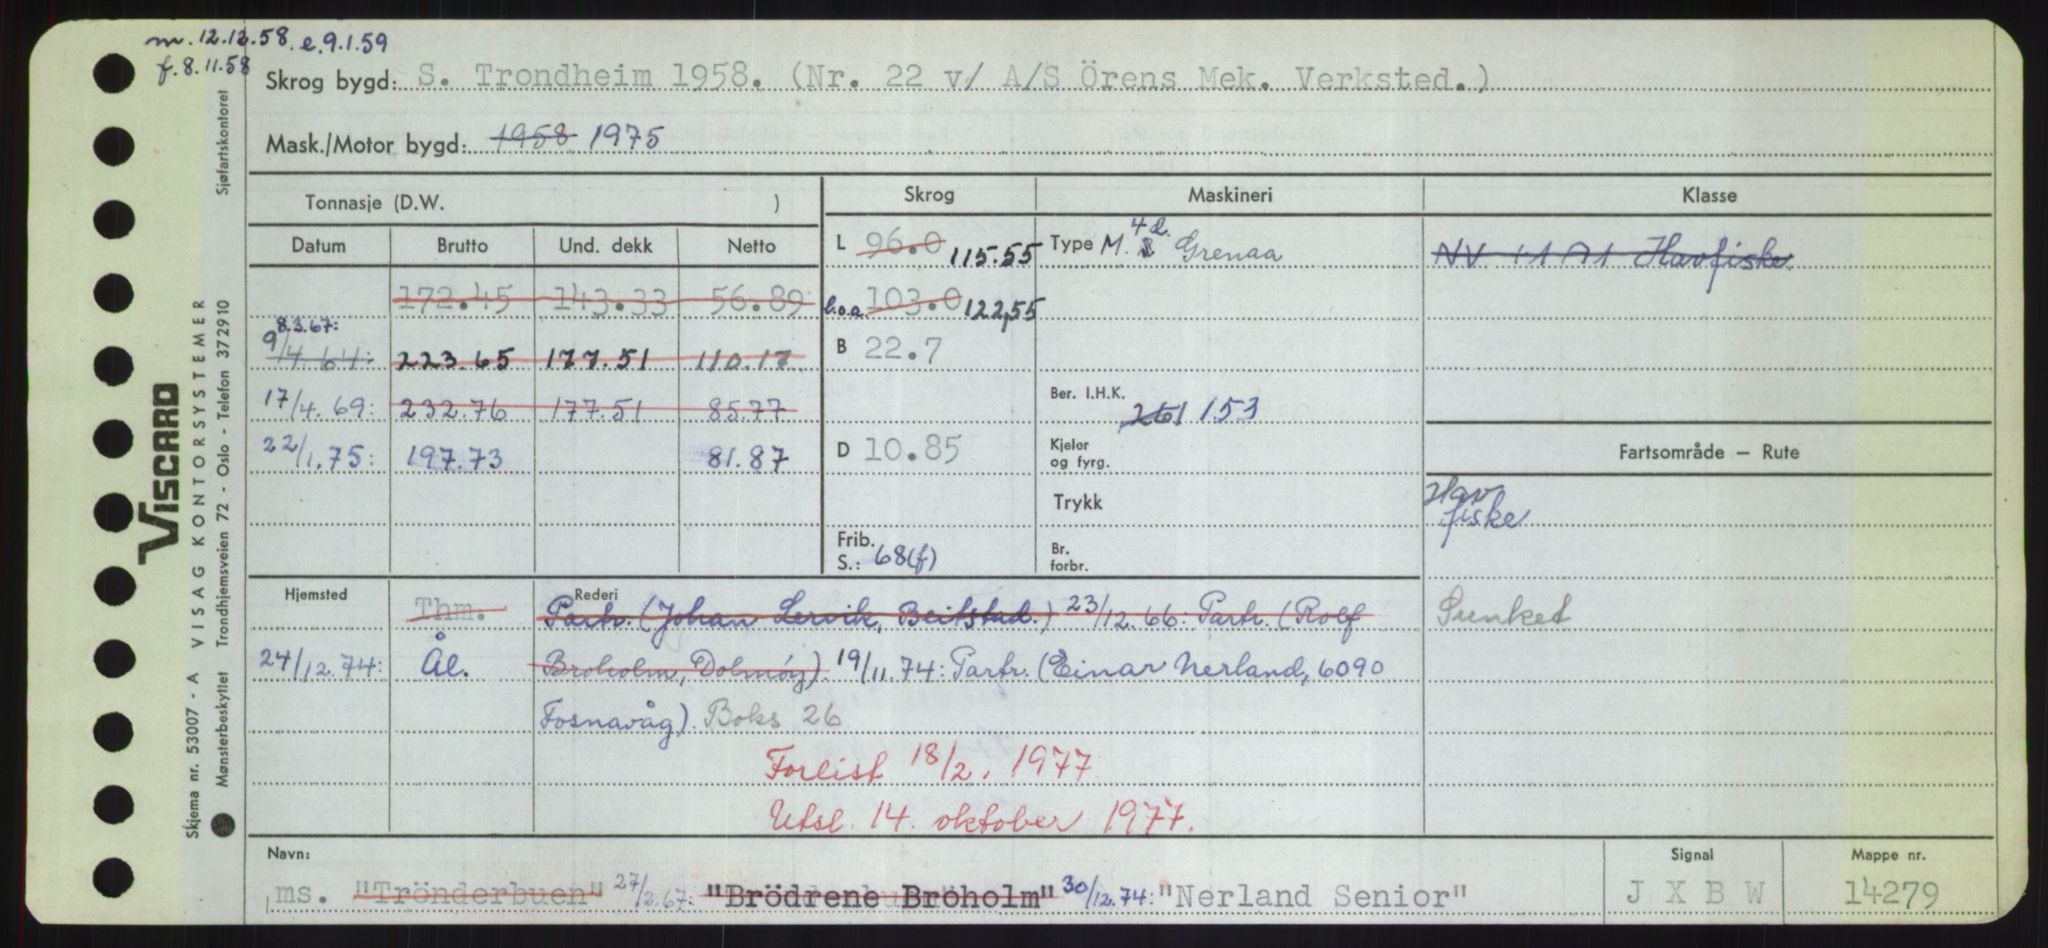 m. 12.12.58. e. 9.1.59
f. 8.11.58
Skrog bygd: S. Trondheim 1958. (Nr. 22 v/ A/S Örens Mek. Verksted.)
Mask./Motor bygd: 1958 1975
Tonnasje (D.W. )
Skrog Maskineri Klasse
Datum Brutto Und. dekk Netto
L 96.0 115.55 Type M. 4d. Grenaa
Havfiske
172.45 143.33 56.89
b.o.a. 103.0 122,55
8.3.67:
9/4.64: 223.65 177.51 110.17
B 22.7
17/4.69: 232.76 177.51 85.77
Ber. I.H.K. 261 153
22/1.75: 197.73 81.87
D 10.85
Kjeler og fyrg.
Fartsområde — Rute
Trykk
Hav
fiske
Frib.
S.: 68(f)
Br. forbr.
Hjemsted Thm. Rederi Partr. (Johan Lervik, Beitstad.) 23/12.66: Partr. (Rolf
Sunket
24/12.74: Ål. Broholm, Dolmöy). 19/11.74: Partr. (Einar Nerland, 6090
Fosnavåg). Boks 26
Forlist 18/2. 1977
Utsl. 14. oktober 1977.
Navn: Signal Mappe nr.
ms. "Trönderbuen" 27/2.67: "Brödrene Bröholm" 30/12.74: "Nerland Senior" J X B W 14279
VISCARD
Skjema nr. 53007 - A VISAG KONTORSYSTEMER
Mønsterbeskyttet Trondhjemsveien 72 - Oslo - Telefon 372910 Sjøfartskontoret